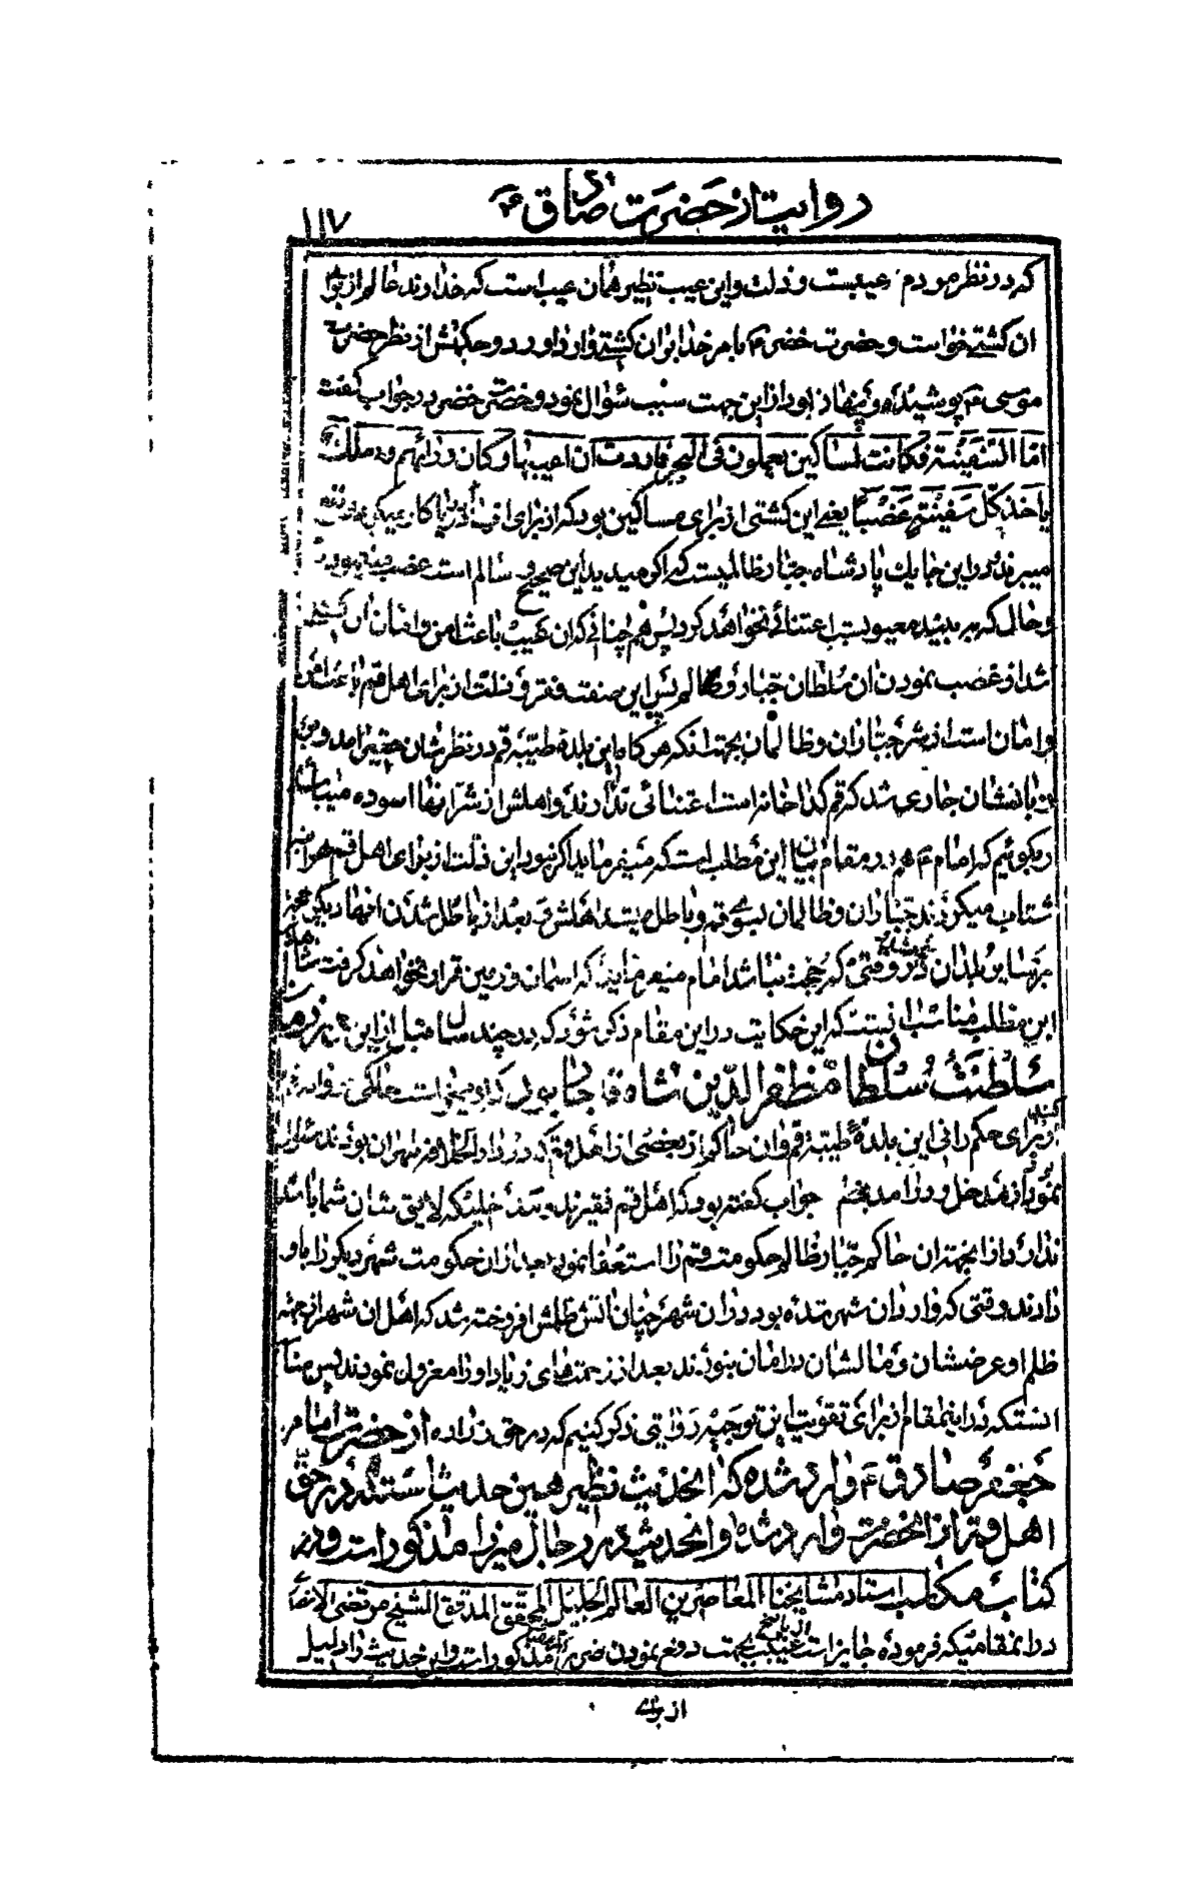 روایت از حضرت صادق ع
۱۱۷
که در نظر مردم عیبست و ذلت و این عیب نظیر همان عیب است که خداوند عالم از برای
ان کشتی خواست و حضرت خضر ع بامر خدا بران کشتی وارد اورد و حکمتش از نظر حضرت
موسی ع پوشیده و پنهان بود از این جهت سبب سؤال نمود و حضرت خضر در جواب گفت
اما السفینة فکانت لمساکین یعملون فی البحر فاردت ان اعیبها و کان ورائهم ملک
یاخذ کل سفینة غصبا یعنی این کشتی از برای مساکین بود که از برای در دریا کار میکردند
میبرند و در این جا یک پادشاه جبار ظالمیست که اگر میدید این صحیح و سالم است غصب مینمود
و حال که ببیند معیوبست اعتنائی نخواهد کرد پس هم چنانی که ان عیب باعث امن و امان ان کشتی
شد از غصب نمودن ان سلطان جبار و ظالم پس این صفت فقر و ذلت از برای اهل قم باعث
و امان است از شر جباران و ظالمان بجهت انکه هر گاه این بلده طیبه قم در نظرشان حقیر امد و بر
زبانشان جاری شد که قم گدا خانه است اعتنائی ندارند و اهلش از شر انها اسوده میباشند
و بگوئیم که امام ع هم در مقام بیان این مطلب است که میفرماید اگر نبود این ذلت از برای اهل قم هر اینه
شتاب میکردند جباران و ظالمان بسوی قم و باطل میشد اهلش و بعد از باطل شدن انها دیگر حجة
بر سایر بلدان نمیشد و در وقتی که حجت نباشد امام میفرماید که اسمان و زمین قرار نخواهد گرفت
این مطلب مناسب انیست که این حکایت در این مقام ذکر شود که در چند سال قبل از این در زمان
سلطنت سلطان مظفر الدین شاه قاجار بود که میخواست حاکمی
از برای حکم رانی این بلده طیبه قم و ان حاکم از بعضی از اهل قم که در دار الخلافه طهران بودند سئوال
نمود از مدخل و درامد قم جواب گفته بود که اهل قم فقیرند خلیکه لایق شان شما باشد
ندارد و از اینجهت ان حاکم جبار ظالم حکومت قم را استعفا نمود بعد از ان حکومت شهر دیگر را باو
دادند وقتی که وارد ان شهر شده بود در ان شهر چنان اتش ظلمش افروخته شد که اهل ان شهر از جهة
ظلم او عرضشان و مالشان در امان نبودند بعد از زحمت های زیاد او را معزول نمودند پس مناسب
انستکه در اینمقام از برای تقویت این توجیه روایتی ذکر کنیم که در حق زراره از حضرت امام
جعفر صادق ع وارد شده که انحدیث نظیر همین حدیث است که در حق
اهل قم از انحضرت وارد شده و انحدیث در رجال میرزا مذکور است و در
کتاب مکاسب استاد مشایخنا المعاصرین العالم الجلیل المحقق المدقق الشیخ مرتضی الانصاری
در انمقامیکه فرموده جایز است غیبت بجهت دفع نمودن ضرر مذکور است و این حدیث را دلیل
از برای